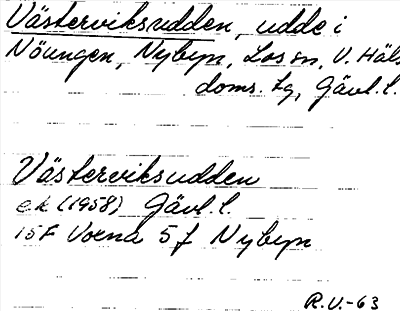 Västerviksudden, udde i
Nöungen, Nybyn, Los sn, V. Häls
doms. tg, Gävl. l.
Västerviksudden
ek (1958) Gävl. l.
15F Voxna 5f Nybyn
R.V.-63